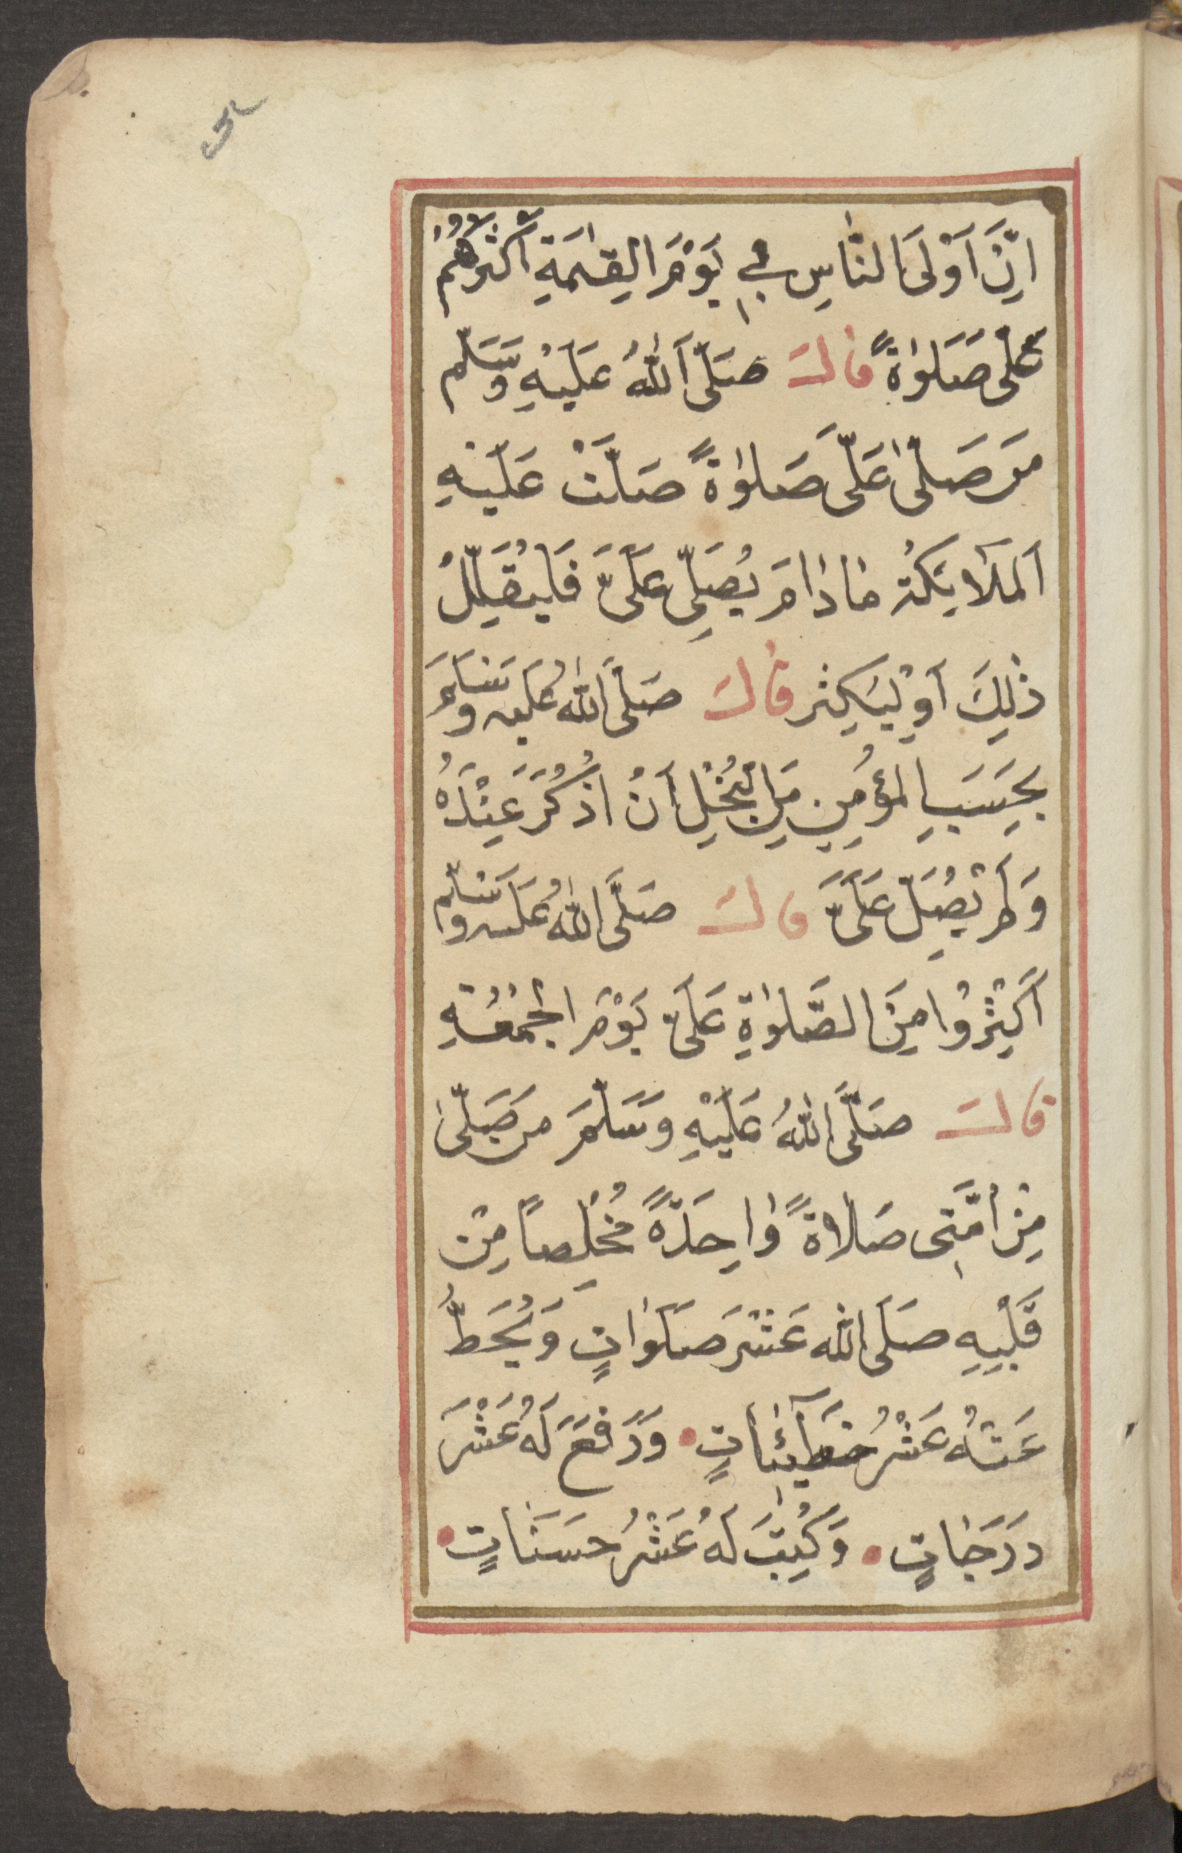 اِنَّ اَوْلَى النَّاسِ بِى يَوْمَ الْقِيٰمَةِ اَكْثَرُهُمْ
عَلَىَّ صَلَوٰةً قَالَ صَلَّى اللّٰهُ عَلَيْهِ وَسَلَّم
مَن صَلّٰى عَلَىَّ صَلوٰةً صَلَّتْ عَلَيْهِ
اَلْمَلَآئِكَةُ مَادَامَ يُصَلِّى عَلَىَّ فَلْيُقَلِّلْ
ذٰلِكَ اَوْ لِيُكْثِر قَالَ صَلَّى اللّٰهُ عَلَيْهِ وَسَلَّمَ
بِحَسَبِ الْمُؤْمِنِ مِنَ الْبُخْلِ اَنْ اُذْكَرَ عِنْدَهُ
وَلَمْ يُصَلِّ عَلَىَّ قَالَ صَلَّى اللّٰهُ عَلَيْهِ وَسَلَّم
اَكْثِرُوْا مِنَ الصَّلوٰةِ عَلَىَّ يَوْمَ الْجُمُعَةِ
قَالَ صَلَّى اللّٰهُ عَلَيْهِ وَسَلَّمَ مَن صَلّٰى
مِنْ اُمَّتِى صَلاةً وٰاحِدَةً مُخْلِصًا مِنْ
قَلْبِهِ صَلَّى اللّٰه عَشْرَ صَلَوٰاتٍ وَيُحَطُّ
عَنْهُ عَشْرُ خَطَآئِئَاتٍ وَرَفَعَ لَهُ عَشْرَ
دَرَجَاتٍ وَكُتِبَ لَهُ عَشْرُ حَسَنَاتٍ